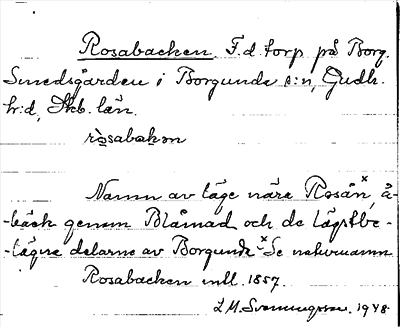 Rosabacken. F.d. torp på Borg.
Smedsgården i Borgunda s:n, Gudh.
h:d, Skb. län.
ròsabakən
Namn av läge nära Rosån,ˣ å-
-bäck genom Blåmad och de lägstbe-
-lägna delarna av Borgunda. ˣSe naturnamn
Rosabacken intl. 1857.
L.M. Svenungsson. 1948